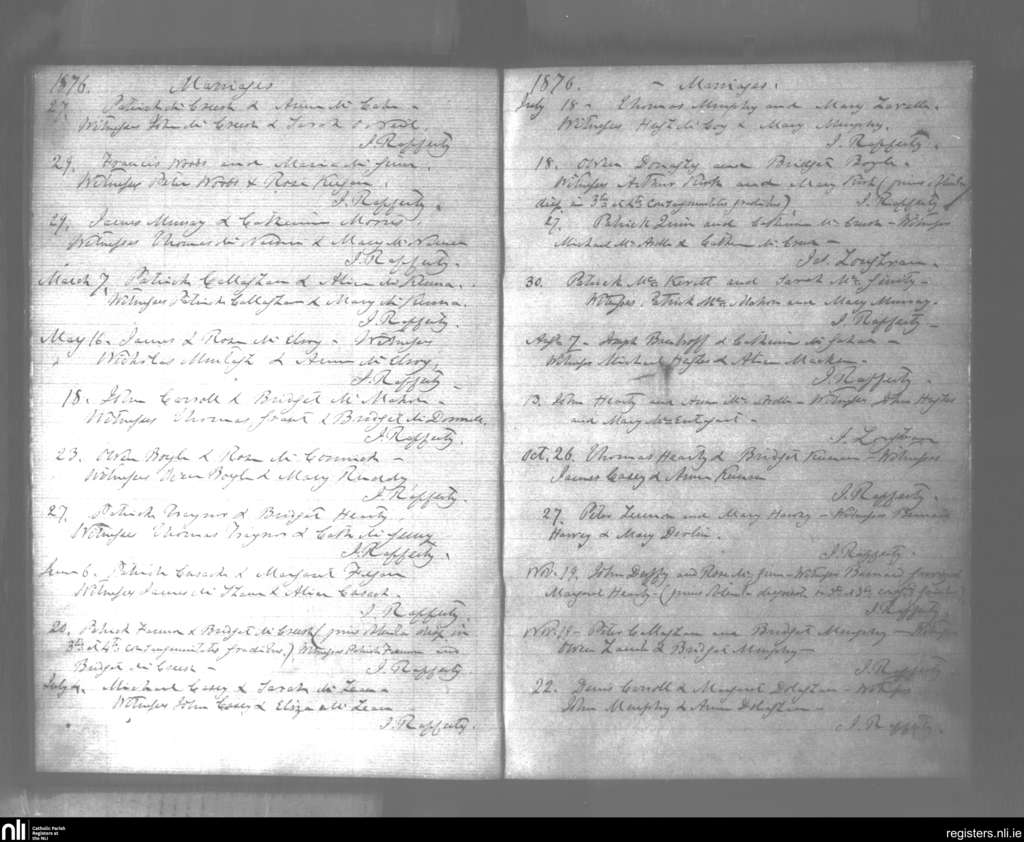 1876. Marriages
27. Patrick McCreesh & Anne McCabe -
Witnesses John McCreesh & Sarah O'Neill.
J. Rafferty
29. Francis Woods and Maria
Witnesses Peter Woods & Rose Keegan.
J. Rafferty.
29. James Murray & Catherine
Witnesses Thomas & Mary
J. Rafferty.
March 7. Patrick Callaghan & Alice McKenna.
Witnesses Patrick Callaghan & Mary McKenna.
J. Rafferty.
May 16. James & Rose McElroy - Witnesses
Nicholas & Anne McElroy.
J. Rafferty -
18. John Carroll & Bridget McMahon -
Witnesses Thomas Grant & Bridget McDonnell.
J. Rafferty.
23. Owen Boyle & Rose McCormick -
Witnesses Owen Boyle & Mary Ruddy.
J. Rafferty.
27. Patrick Traynor & Bridget Hearty.
Witnesses Thomas Traynor & Cath
J. Rafferty.
June 6. Patrick Cusack & Margaret Fegan
Witnesses James & Alice Cusack -
J. Rafferty
20. Patrick & Bridget McCreesh (prius disp in
3tio et 4to consanguinitatis gradibus.) Witnesses Patrick and
Bridget McCreesh - J. Rafferty
July 4. Michael Casey & Sarah McLean -
Witnesses John Casey & Eliza McLean -
J. Rafferty.
1876. - Marriages.
July 18 - Thomas Murphy and Mary Lavelle.
Witnesses McCoy & Mary Murphy.
J. Rafferty.
18. Owen and Bridget Boyle -
Witnesses Arthur Kirk and Mary Kirk (prius obtenta
disp in 3tio et 4to consanguinitatis gradibus) J. Rafferty
27. Patrick Quinn and Catherine - Witnesses
Michael McArdle & Catherine McCreesh -
Js. Loughran -
30. Patrick McKevitt and Sarah McGinity -
Witnesses Patrick McMahon and Mary Murray.
J. Rafferty -
7 - Joseph & Catherine -
Witnesses Michael & Alice Mackin -
J. Rafferty -
13. John Hearty and Anne McArdle - Witnesses John
and Mary McEntegart -
J. Loughran
Oct. 26. Thomas Hearty & Bridget Keenan - Witnesses
James Casey & Anne Keenan
J. Rafferty.
27. Peter Lennon and Mary Harvey - Witnesses Bernard
Harvey & Mary Devlin.
J. Rafferty.
Nov. 19. John Duffy and Rose - Witnesses Bernard
Margaret Hearty - (prius
J. Rafferty.
Nov. 19 - Peter Callaghan and Bridget Murphy - Witnesses
Owen Lamb & Bridget Murphy -
J. Rafferty
22. Denis Carroll & Margaret Dolaghan - Witnesses
John Murphy & Anne Dolaghan -
J. Rafferty.
nli
Catholic Parish
Registers at
the NLI
registers.nli.ie